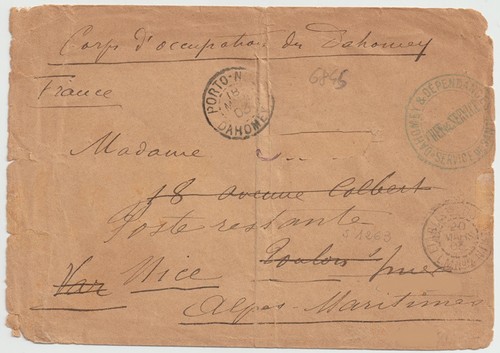 Corps d'occupation du Dahomey
6845
France
PORTO-N
18
03
DAHOMEY
DAHOMEY & DÉPENDANCES
SERVICE
Madame
18 avenue Colbert
Poste restante
20
Toulon s/mer
Var Nice
Alpes-Maritimes